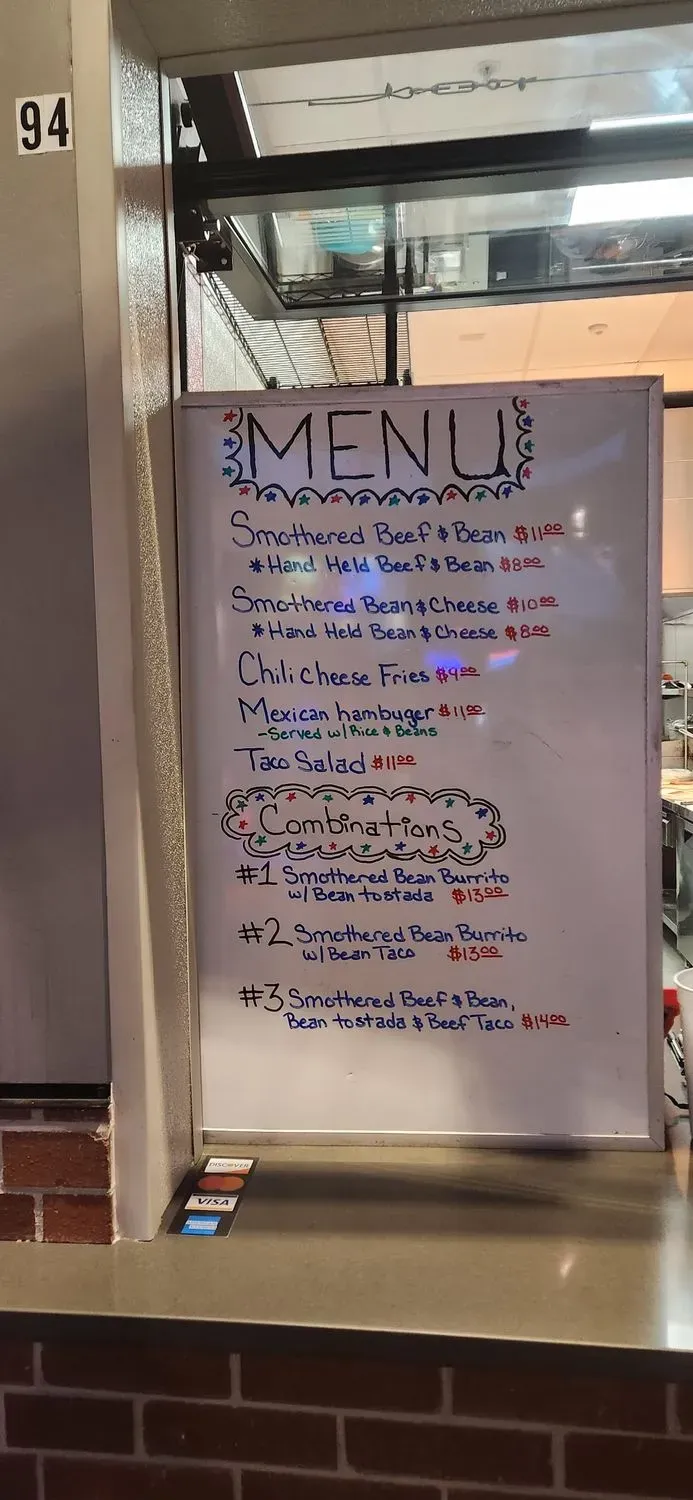 94
MENU
Smothered Beef & Bean $11.00
*Hand Held Beef & Bean $8.00
Smothered Bean & Cheese $10.00
*Hand Held Bean & Cheese $8.00
Chili cheese Fries $9.00
Mexican hambuger $11.00
-Served w/ Rice & Beans
Taco Salad $11.00
Combinations
#1 Smothered Bean Burrito
w/ Bean tostada $13.00
#2 Smothered Bean Burrito
w/ Bean Taco $13.00
#3 Smothered Beef & Bean,
Bean tostada & Beef Taco $14.00
DISCOVER
VISA
AMERICAN EXPRESS